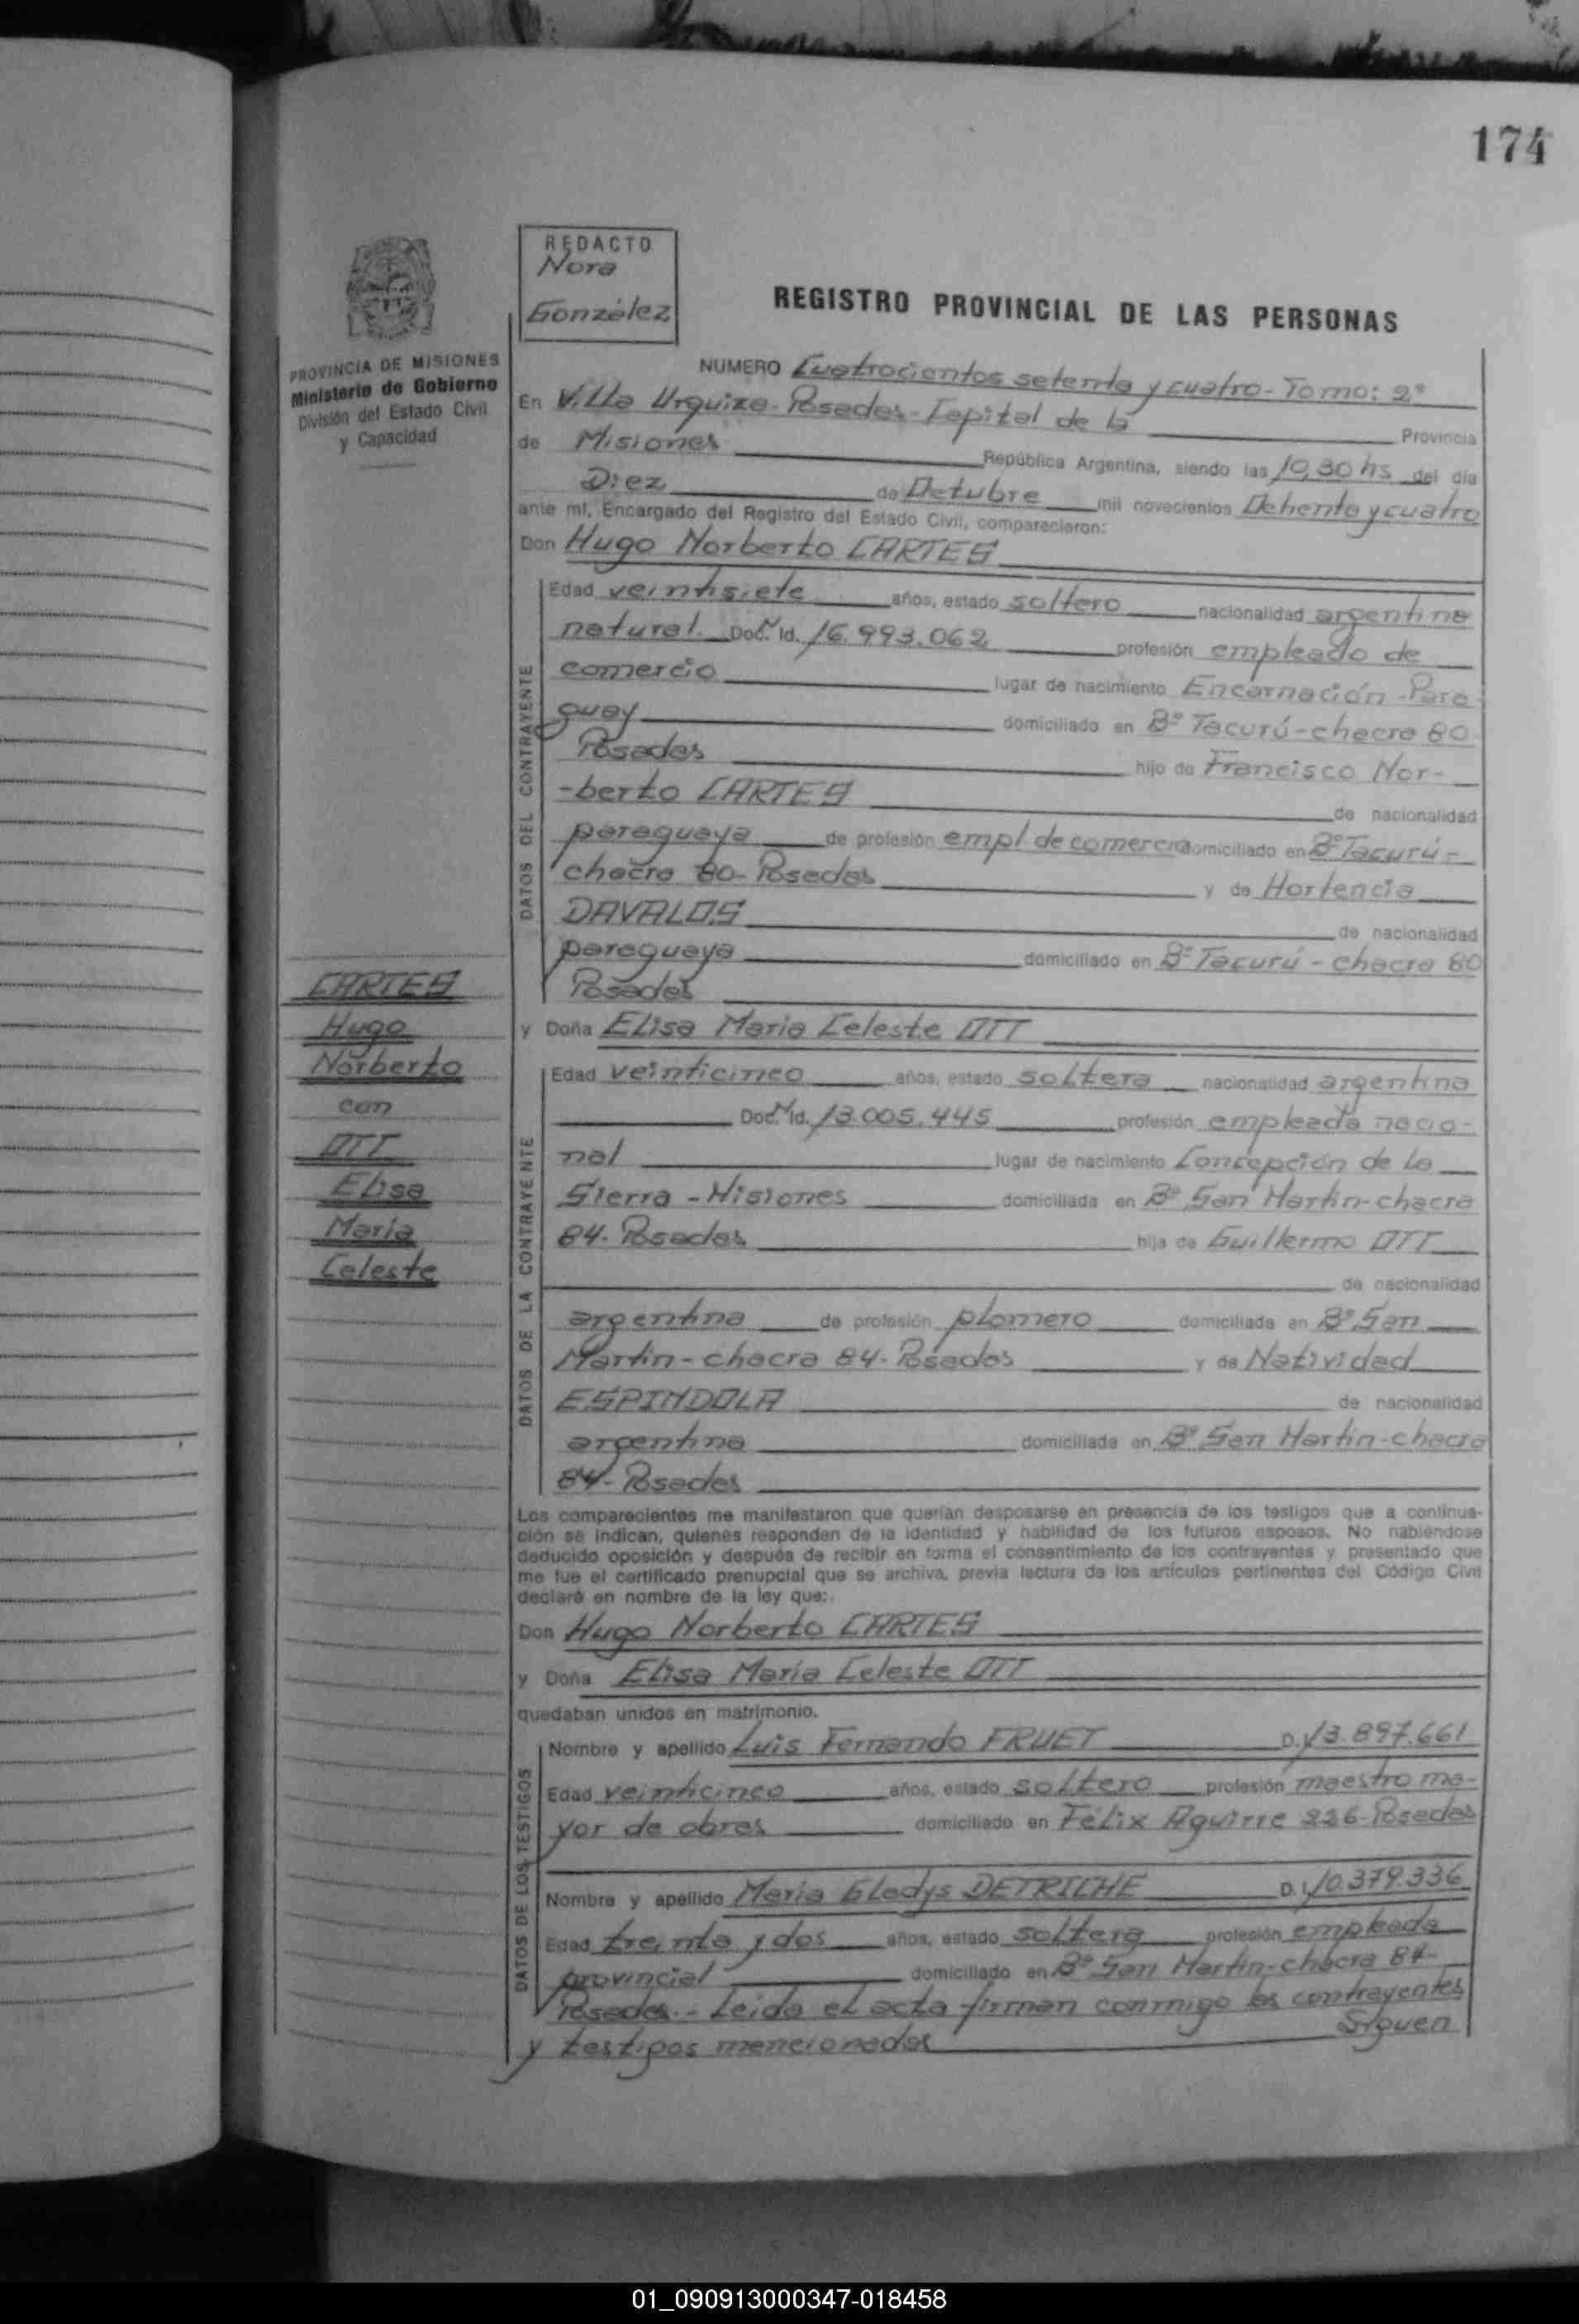 174
REDACTO
Nora
González
REGISTRO PROVINCIAL DE LAS PERSONAS
PROVINCIA DE MISIONES
Ministerio de Gobierno
División del Estado Civil
y Capacidad
NUMERO Cuatrocientos setenta y cuatro - Tomo: 2º
En Villa Urquiza - Posadas - Capital de la Provincia
de Misiones República Argentina, siendo las 10,30 hs del día
Diez de Octubre mil novecientos Ochenta y cuatro
ante mí, Encargado del Registro del Estado Civil, comparecieron:
Don Hugo Norberto CARTES
DATOS DEL CONTRAYENTE
Edad veintisiete años, estado soltero nacionalidad argentina
natural Doc. Nº Id. 16.993.062 profesión empleado de
comercio lugar de nacimiento Encarnación - Para-
guay domiciliado en Bº Tacurú - chacra 80
Posadas hijo de Francisco Nor-
-berto CARTES de nacionalidad
paraguaya de profesión empl. de comercio domiciliado en Bº Tacurú -
chacra 80 - Posadas y de Hortencia
DAVALOS de nacionalidad
paraguaya domiciliado en Bº Tacurú - chacra 80
Posadas
CARTES
Hugo
Norberto
con
OTT
Elisa
María
Celeste
y Doña Elisa María Celeste OTT
DATOS DE LA CONTRAYENTE
Edad veinticinco años, estado soltera nacionalidad argentina
Doc. Nº Id. 13.005.445 profesión empleada nacio-
nal lugar de nacimiento Concepción de la
Sierra - Misiones domiciliada en Bº San Martín - chacra
84 - Posadas hija de Guillermo OTT
de nacionalidad
argentina de profesión plomero domiciliada en Bº San
Martín - chacra 84 - Posadas y de Natividad
ESPINDOLA de nacionalidad
argentina domiciliada en Bº San Martín - chacra
84 - Posadas
Los comparecientes me manifestaron que querían desposarse en presencia de los testigos que a continua-
ción se indican, quienes responden de la identidad y habilidad de los futuros esposos. No habiéndose
deducido oposición y después de recibir en forma el consentimiento de los contrayentes y presentado que
me fue el certificado prenupcial que se archiva, previa lectura de los artículos pertinentes del Código Civil
declaré en nombre de la ley que:
Don Hugo Norberto CARTES
y Doña Elisa María Celeste OTT
quedaban unidos en matrimonio.
DATOS DE LOS TESTIGOS
Nombre y apellido Luis Fernando FRUET D.I. 13.897.661
Edad veinticinco años, estado soltero profesión maestro ma-
yor de obras domiciliado en Félix Aguirre 226 - Posadas
Nombre y apellido María Gladys DETRICHE D.I. 10.379.336
Edad treinta y dos años, estado soltera profesión empleada
provincial domiciliado en Bº San Martín - chacra 84 -
Posadas. - Leída el acta firman conmigo los contrayentes
y testigos mencionados Siguen
01_090913000347-018458